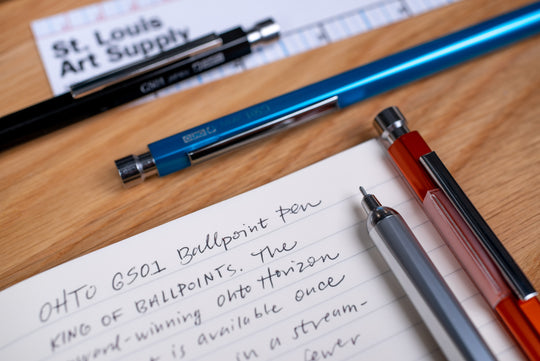 St. Louis
Art Supply
GS01
OHTO GS01 Ballpoint Pen
KING OF BALLPOINTS. The
award-winning Ohto Horizon
is available once
in a stream-
fewer